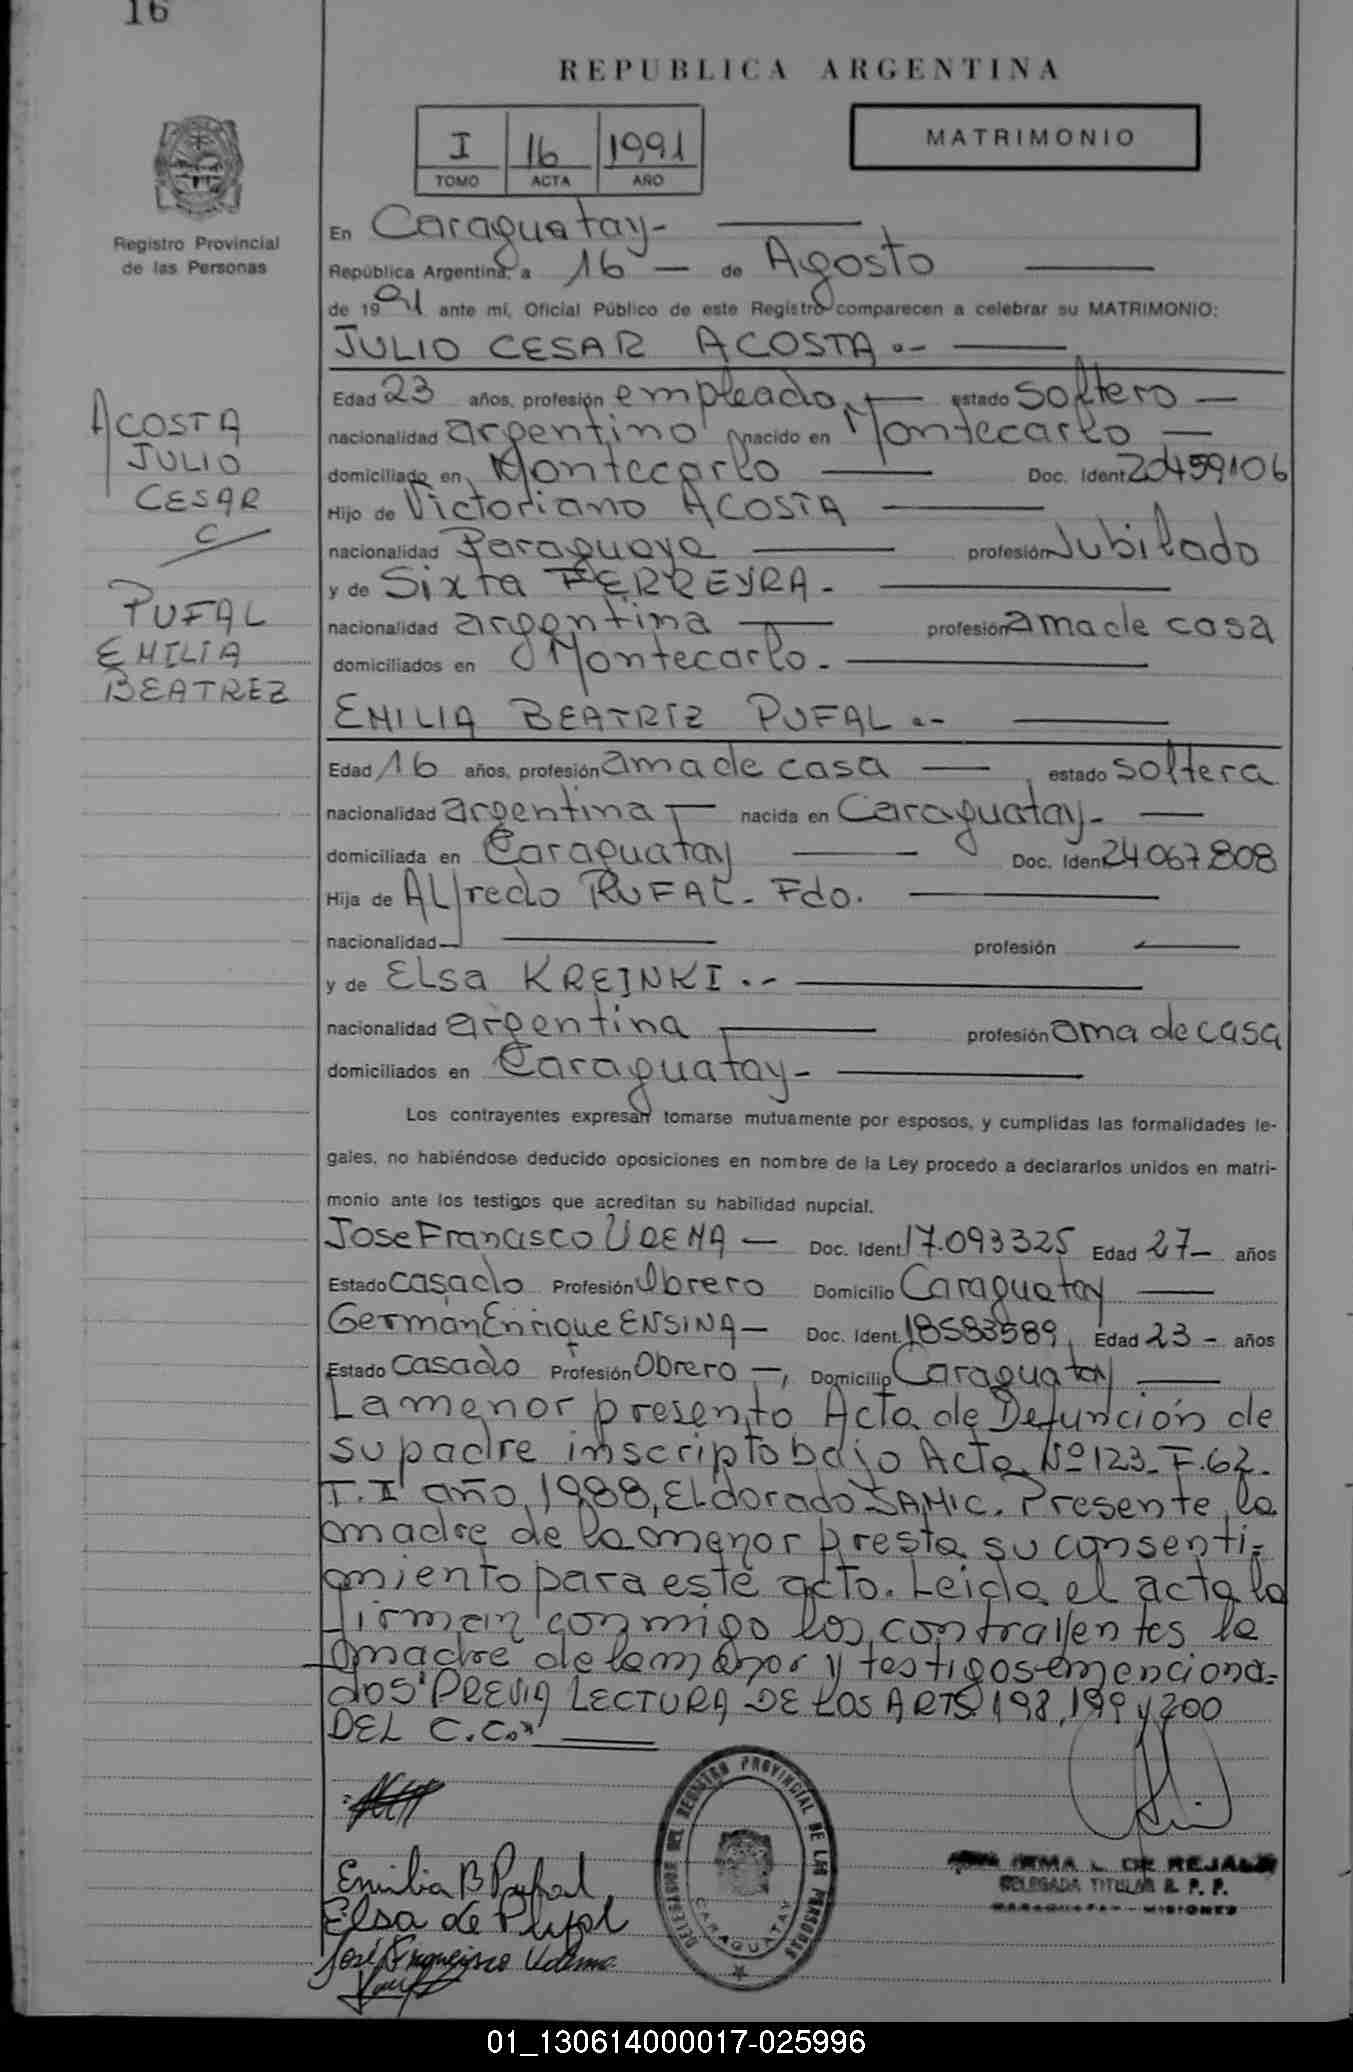 16
REPUBLICA ARGENTINA
I 16 1991
TOMO ACTA AÑO
MATRIMONIO
Registro Provincial
de las Personas
En Caraguatay-
República Argentina, a 16 — de Agosto
de 1991 ante mí, Oficial Público de este Registro comparecen a celebrar su MATRIMONIO:
JULIO CESAR ACOSTA.-
Edad 23 años, profesión empleado. estado soltero —
nacionalidad argentino nacido en Montecarlo —
domiciliado en Montecarlo Doc. Ident. 20459106
Hijo de Victoriano ACOSTA
nacionalidad Paraguaya profesión Jubilado
y de Sixta FERREYRA-
nacionalidad argentina profesión ama de casa
domiciliados en Montecarlo-
ACOSTA
JULIO
CESAR
C
PUFAL
EMILIA
BEATREZ
EMILIA BEATRIZ PUFAL.-
Edad 16 años, profesión ama de casa — estado soltera
nacionalidad argentina nacida en Caraguatay- —
domiciliada en Caraguatay Doc. Iden. 24.067.808
Hija de ALfredo PUFAL- Fdo.
nacionalidad profesión
y de ELsa KREINKI.-
nacionalidad argentina profesión ama de casa
domiciliados en Caraguatay-
Los contrayentes expresan tomarse mutuamente por esposos, y cumplidas las formalidades le-
gales, no habiéndose deducido oposiciones en nombre de la Ley procedo a declararlos unidos en matri-
monio ante los testigos que acreditan su habilidad nupcial.
Jose Francisco UDEMA — Doc. Ident. 17.093325 Edad 27- años
Estado casado Profesión Obrero Domicilio Caraguatay
Germán Enrique ENSINA — Doc. Ident. 18583589 Edad 23 - años
Estado casado Profesión Obrero —, Domicilio Caraguatay
La menor presento Acta de Defunción de
su padre inscripto bajo Acta Nº 123- F.62.
T.I año 1988, ELdorado SAMIC. Presente la
madre de la menor presta su consenti-
miento para este acto. Leida el acta la
firman conmigo los contrayentes la
madre de la menor y testigos menciona-
dos "PREVIA LECTURA DE LOS ARTS 198, 199 y 200
DEL C.C."
Emilia B Pufal
Elsa de Pufal
José Francisco Udema
DELEGACION DEL REGISTRO PROVINCIAL DE LAS PERSONAS
CARAGUATAY
IRMA L. DE REJALA
DELEGADA TITULAR R. P. P.
CARAGUATAY - MISIONES
01_130614000017-025996